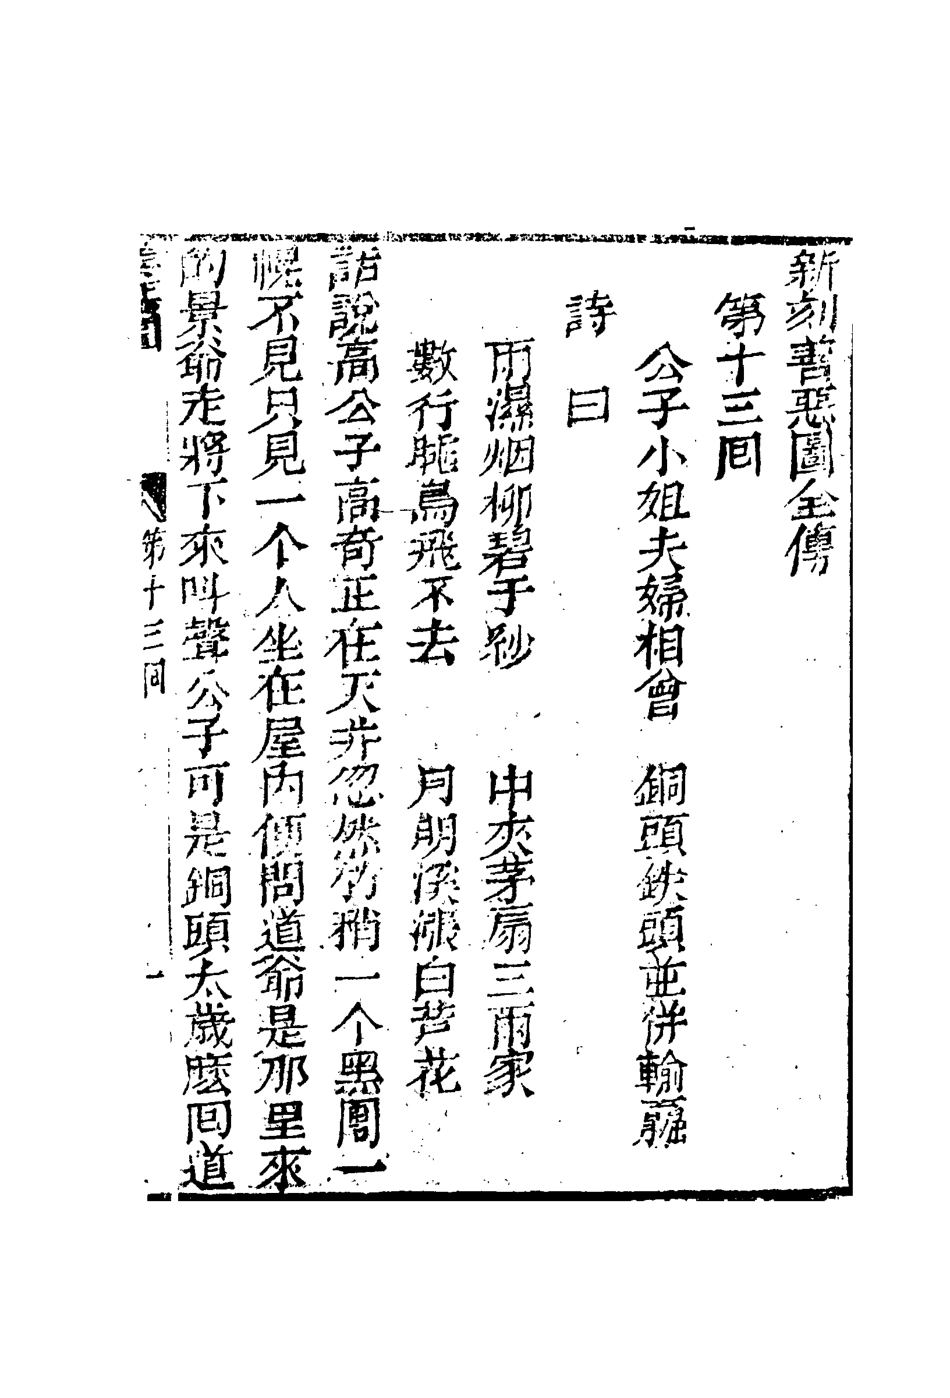 新刻善惡圖全傳
第十三囘
公子小姐夫婦相會　銅頭鉄頭並併輸贏
詩曰
雨濕烟柳碧于紗　中夾茅扇三兩家
數行鷗鳥飛不去　月明溪漲白芦花
話說高公子高奇正在天井忽然竹稍一个黑團一
幌不見只見一个人坐在屋內便問道爺是那里來
的景爺走將下來叫聲公子可是銅頭太歲麽囘道
善惡圖
第十三囘
一